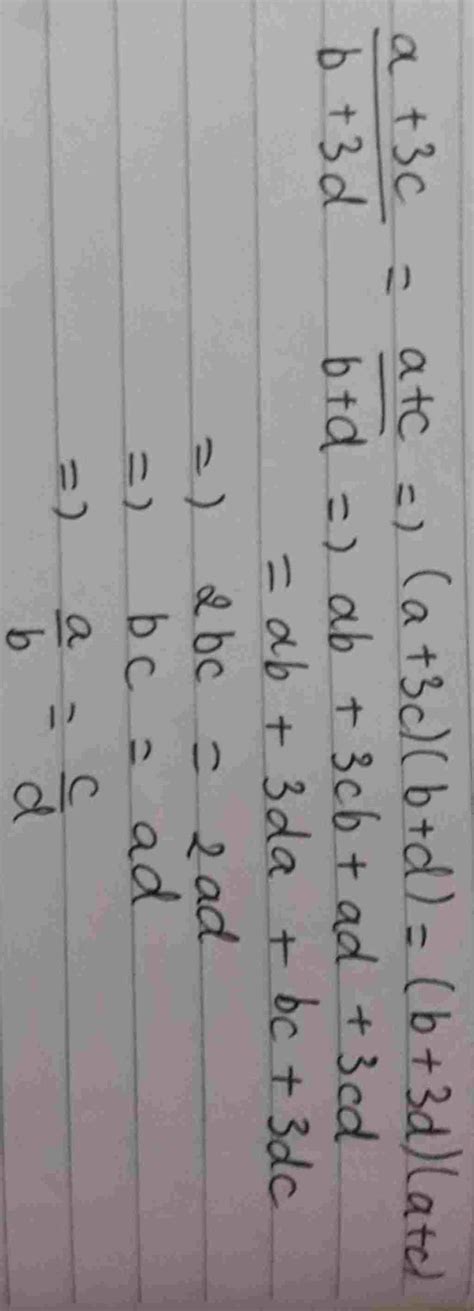 a + 3c / b + 3d = a+c / b+d => (a + 3c)(b+d) = (b + 3d)(a+c)
=> ab + 3cb + ad + 3cd
= ab + 3da + bc + 3dc
=> 2bc = 2ad
=> bc = ad
=> a/b = c/d